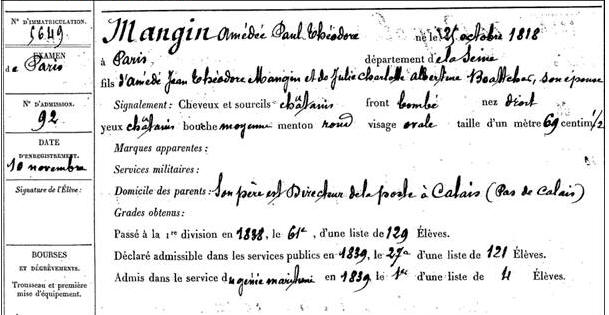 N° D'IMMATRICULATION.
5649
EXAMEN
de Paris
N° D'ADMISSION.
92
DATE
D'ENREGISTREMENT.
10 novembre
Signature de l'Élève :
BOURSES
ET DÉGRÈVEMENTS.
Trousseau et première
mise d'équipement.
Mangin Amédée Paul Théodore né le 25 octobre 1818
à Paris, département de la Seine
fils d'Amédé Jean Théodore Mangin et de Julie Charlotte Albertine son épouse
Signalement: Cheveux et sourcils châtains front bombé nez droit
yeux châtains bouche moyenne menton rond visage ovale taille d'un mètre 69 centim 1/2
Marques apparentes :
Services militaires :
Domicile des parents : Son père est Directeur de la poste à Calais (Pas de Calais)
Grades obtenus :
Passé à la 1re division en 1838, le 61e, d'une liste de 129 Élèves.
Déclaré admissible dans les services publics en 1839, le 27e d'une liste de 121 Élèves.
Admis dans le service du génie maritime en 1839 le 1er d'une liste de 4 Élèves.